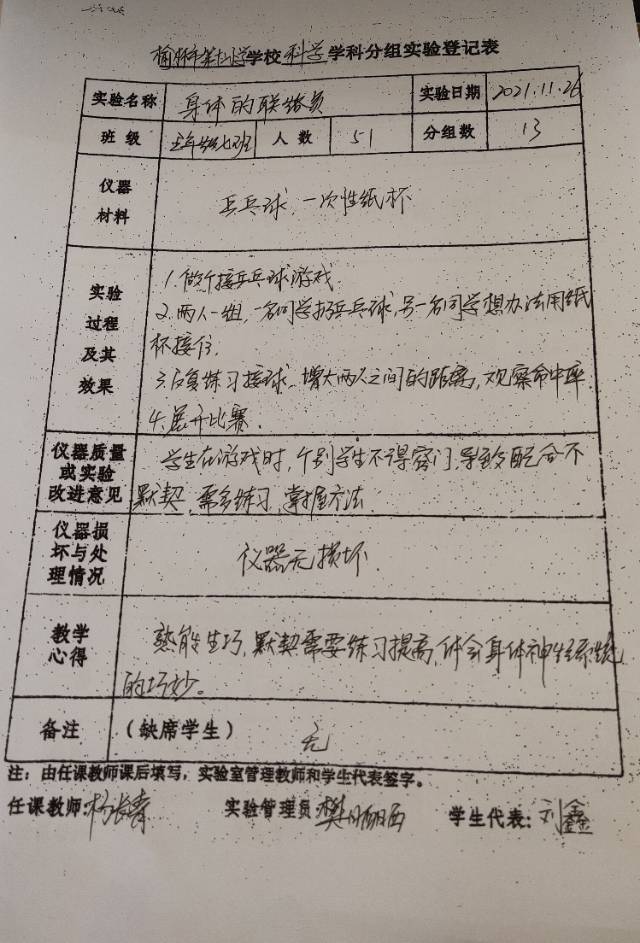 学校科学学科分组实验登记表
实验名称 身体的联络员 实验日期 2021.11.26
班级 五年级七班 人数 51 分组数 13
仪器
材料
乒乓球、一次性纸杯
实验
过程
及其
效果
1.做个接乒乓球游戏.
2.两人一组,一名同学扔乒乓球,另一名同学想办法用纸
杯接住.
3.反复练习接球、增大两人之间的距离,观察命中率.
4.展开比赛.
仪器质量
或实验
改进意见
学生在游戏时,个别学生不得窍门,导致配合不
默契,需多练习,掌握方法.
仪器损
坏与处
理情况
仪器无损坏.
教学
心得
熟能生巧,默契需要练习提高,体会身体神经系统
的巧妙。
备注 (缺席学生) 无
注:由任课教师课后填写,实验室管理教师和学生代表签字。
任课教师:杨长青 实验管理员: 学生代表:刘鑫